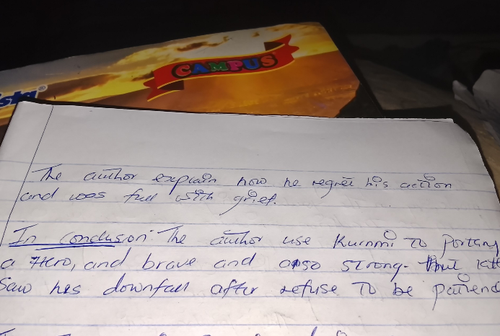 CAMPUS
The author explain how he regret his action
and was full with grief.
In conclusion The author use Kurnmi to portray
a Hero, and brave and also strong. that
saw his downfall after refuse to be